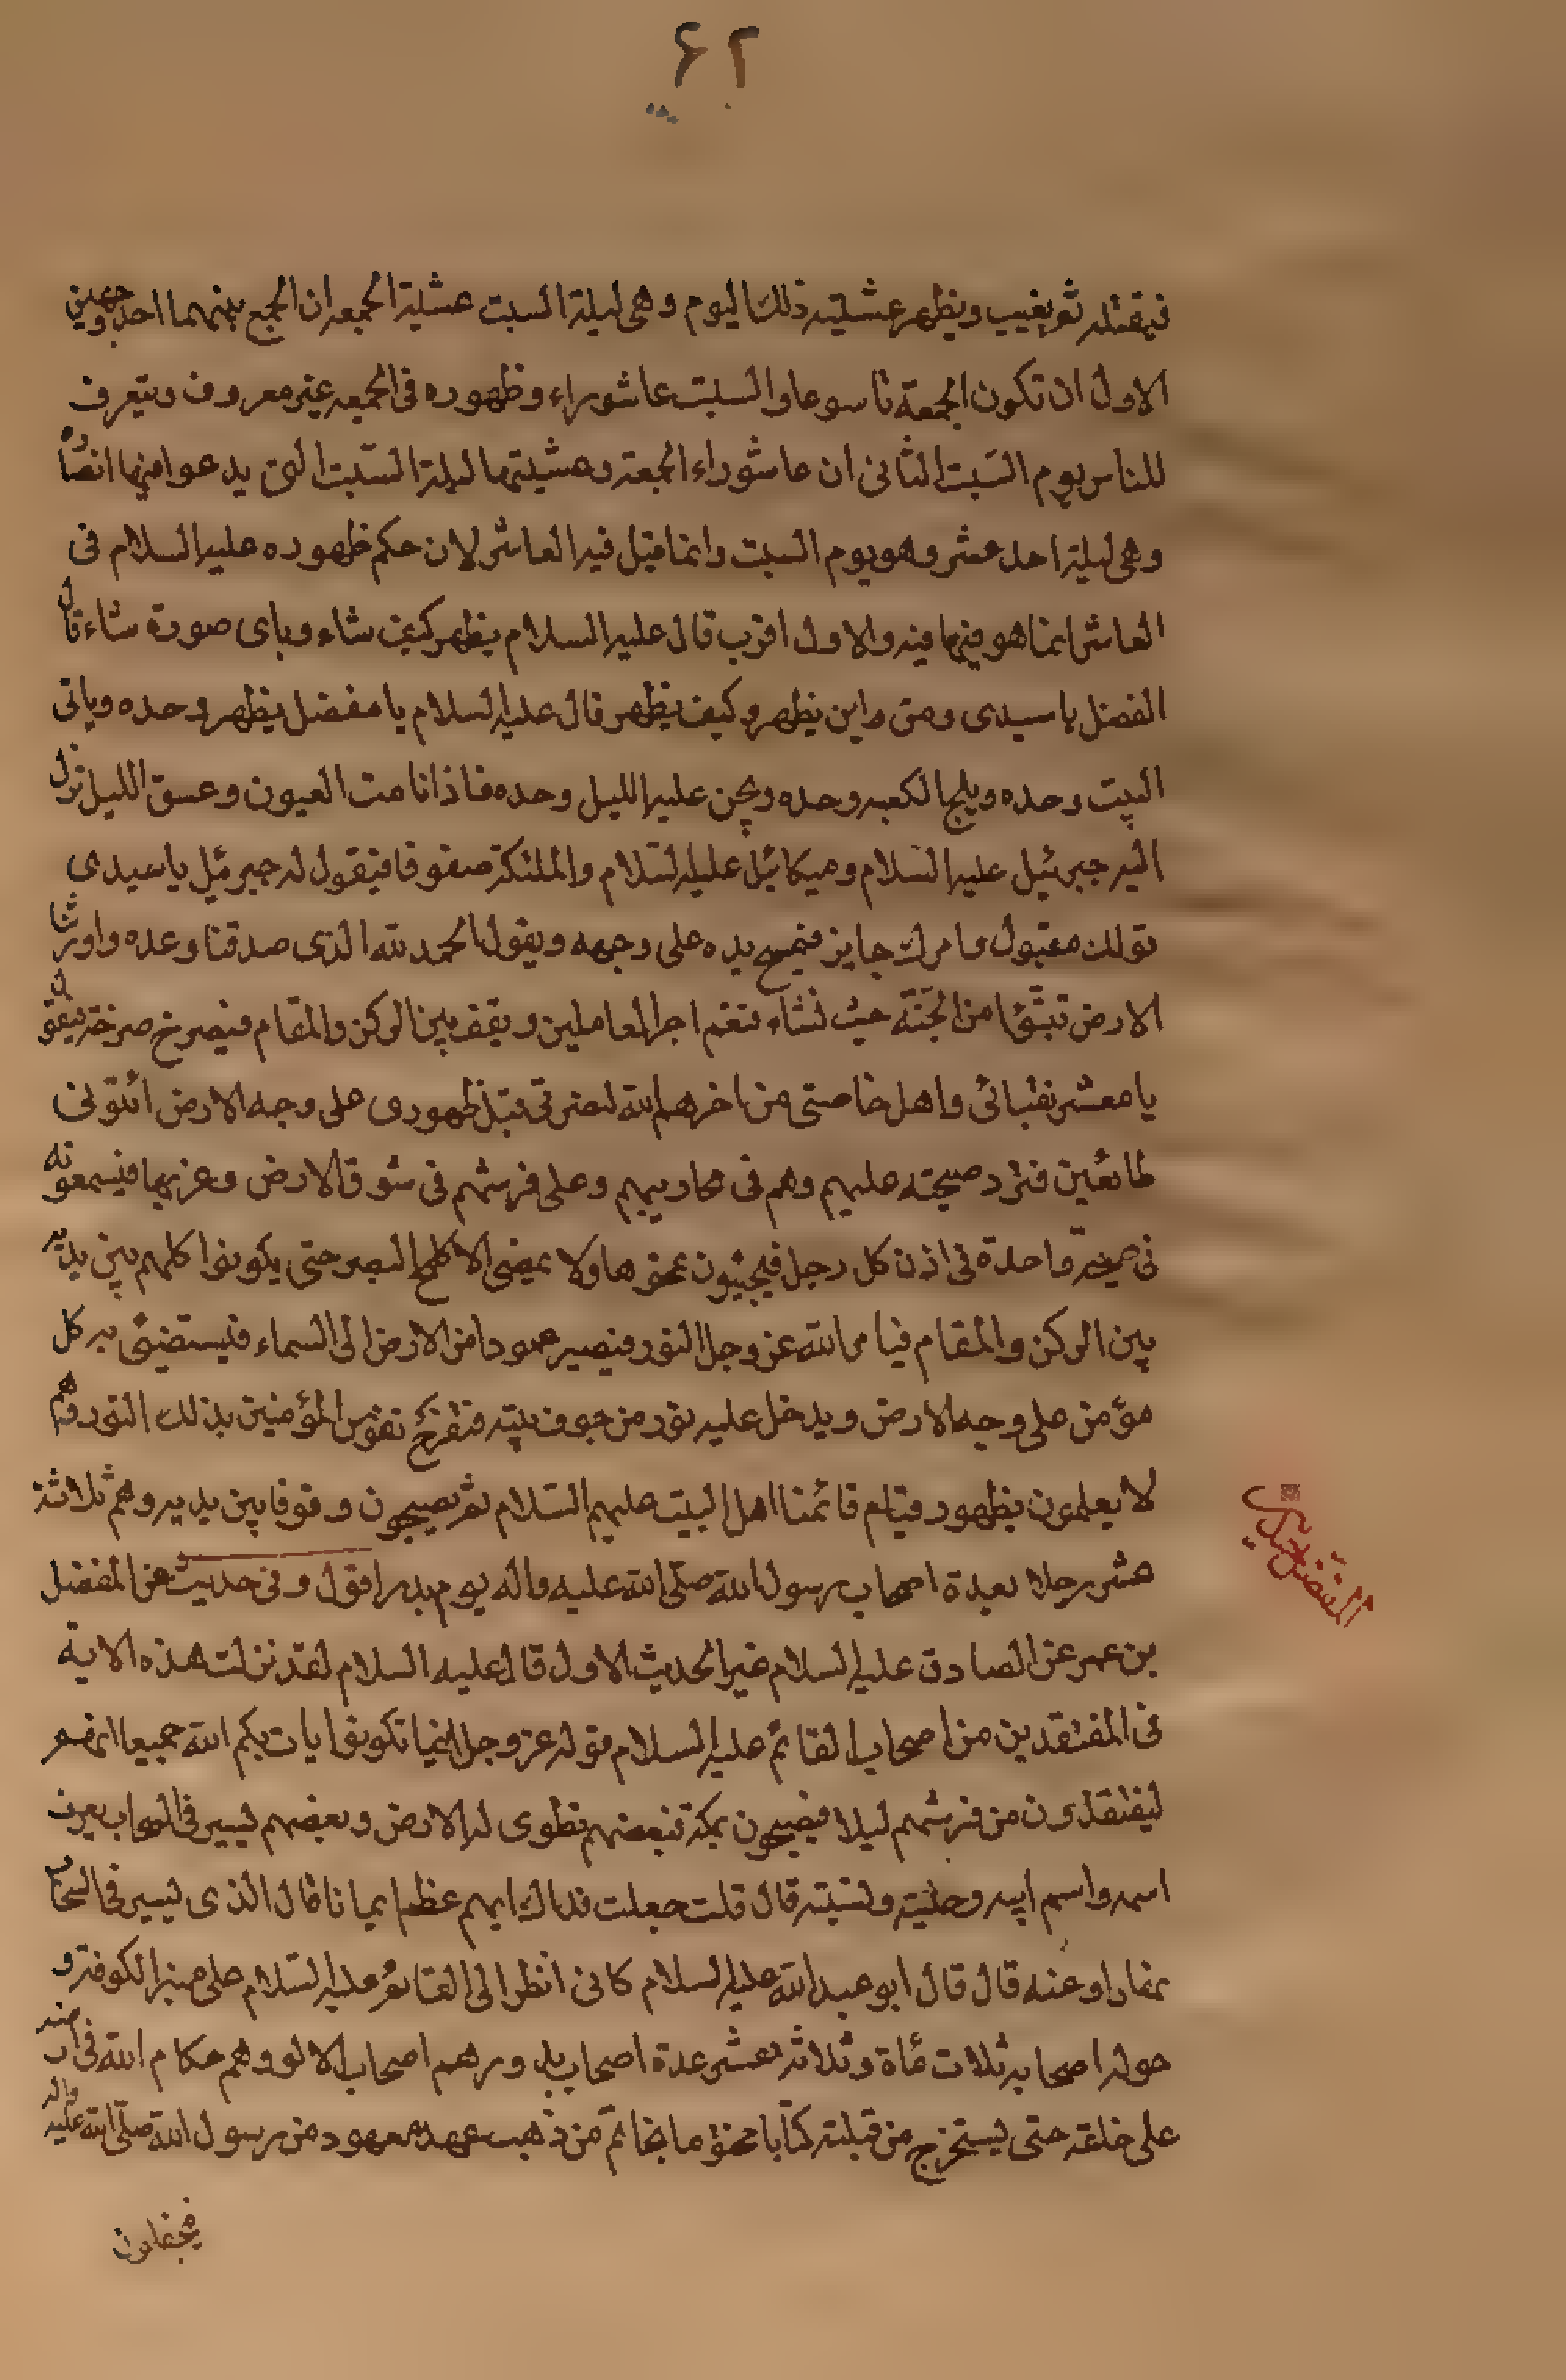 ۶۲
فيقتله ثم يغيب ويظهر عشية ذلك اليوم وهى ليلة السبت عشية الجمعه ان الجمع بينهما احد وجهين
الاول ان تكون الجمعة تاسوعا والسبت عاشوراء وظهوره فى الجمعه غير معروف ويتعرف
للناس يوم السّبت الثانى ان عاشوراء الجمعة وعشيتها ليلة السّبت التى يدعوا فيها انصاره
وهى ليلة احد عشر وهو يوم السبت وانما قيل فيه العاشر لان حكم ظهوره عليه السلام فى
العاشر انما هو فيها فيه والاول اقرب قال عليه السلام يظهر كيف شاء وباى صورة شاء قال
المفضل يا سيدى ومن واين يظهر وكيف يظهر قال عليه السلام يا مفضل يظهر وحده وياتى
البيت وحده ويلج الكعبه وحده ويجن عليه الليل وحده فاذا نامت العيون وغسق الليل نزل
اليه جبرئيل عليه السّلام وميكائيل عليه السّلام والملئكة صفوفا فيقول له جبرئيل يا سيدى
قولك مقبول وامرك جايز فيمسح يده على وجهه ويقول الحمد لله الذى صدقنا وعده واورثنا
الارض نتبوّأ من الجنّة حيث نشاء فنعم اجر العاملين ويقف بين الركن والمقام فيصرخ صرخة فيقول
يا معشر نقبائى واهل خاصتى من ذخرهم الله لنصرتى قبل ظهورى على وجه الارض ائتونى
طائعين فترد صيحته عليهم وهم فى محاريبهم وعلى فرشهم فى شرق الارض وغربها فيسمعونه
فى صيحة واحدة فى اذن كل رجل فيجيئون نحوها ولا يمضى الا كلمح البصر حتى يكونوا كلهم بين يديه
بين الركن والمقام فيامر الله عز وجل النور فيصير عمودا من الارض الى السماء فيستضيئ به كل
مؤمن على وجه الارض ويدخل عليه نور من جوف بيته فتفرح نفوس المؤمنين بذلك النور وهم
لا يعلمون بظهور وقيام قائمنا اهل البيت عليهم السّلام ثم يصبحون وقوفا بين يديه وهم ثلاثة
عشر رجلا بعدة اصحاب رسول الله صلّى الله عليه واله يوم بدر اقول وفى حديث عن المفضل
بن عمر عن الصادق عليه السلام غير الحديث الاول قال عليه السلام لقد نزلت هذه الاية
فى المفتقدين من اصحاب القائم عليه السلام قوله عز وجل اينما تكونوا يات بكم الله جميعا انهم
ليفتقدون من فرشهم ليلا فيصبحون بمكة فبعضهم تطوى له الارض وبعضهم يسير فى السحاب يعرف
اسمه واسم ابيه وحليته ونسبته قال قلت جعلت فداك ايهم عظم ايمانا قال الذى يسير فى السحاب
نهارا وعنه قال قال ابو عبد الله عليه السلام كانى انظر الى القائم عليه السّلام على منبر الكوفة و
حوله اصحابه ثلاث مأة وثلاثه عشر عدة اصحاب بدر وهم اصحاب الالو وهم حكام الله فى ارضه
على خلقه حتى يستخرج من قبلته كتابا مختوما بخاتم من ذهب عهد معهود من رسول الله صلّى الله عليه واله
فيجفلون
المفضل